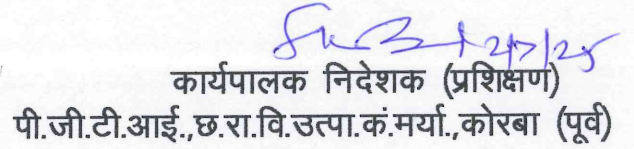 2/7/25
कार्यपालक निदेशक (प्रशिक्षण)
पी.जी.टी.आई.,छ.रा.वि.उत्पा.कं.मर्या.,कोरबा (पूर्व)